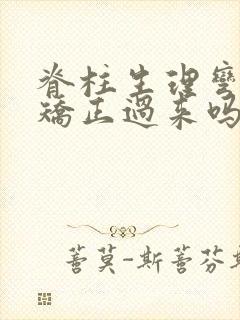 脊柱生理弯
矫正过来吗
蒈莫-斯蒈芬斯